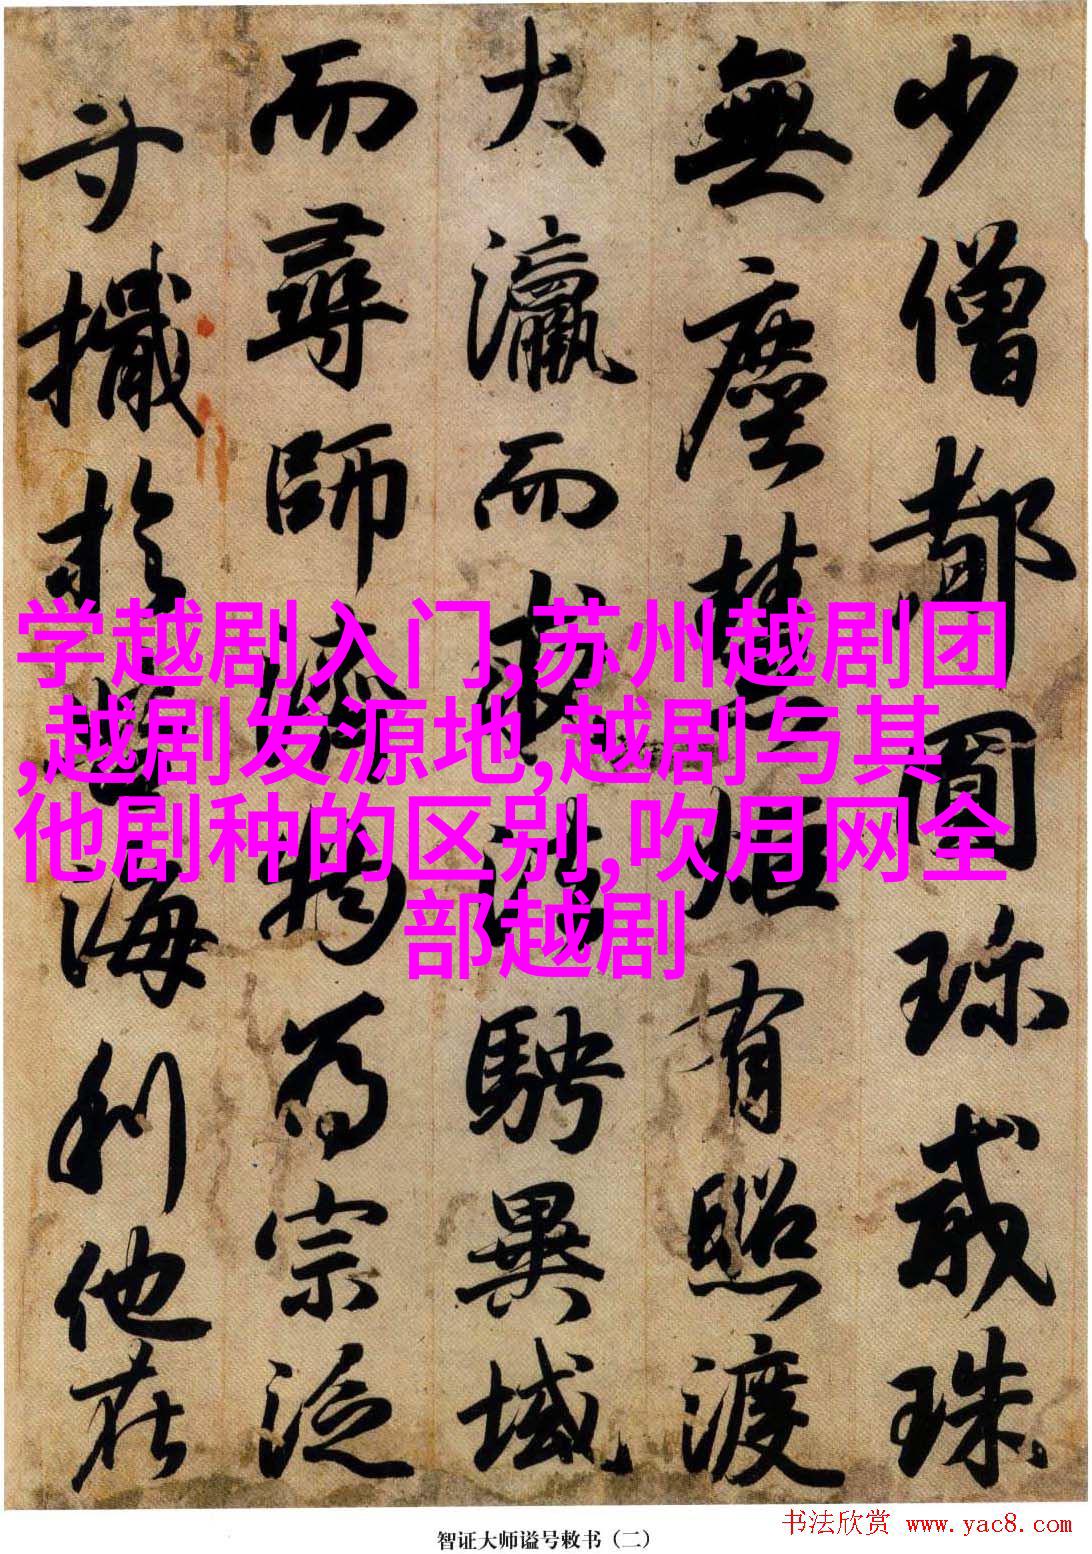 少僧都圓珍戒珠
無塵慧炬有照渡
大瀛而求法騁異域
而尋師濟物為宗泛
寸檝於海利他在
学越剧入门,苏州越剧团
,越剧发源地,越剧与其
他剧种的区别,吹月网全
部越剧
智证大师谥号敕书（二）
书法欣赏 www.yac8.com